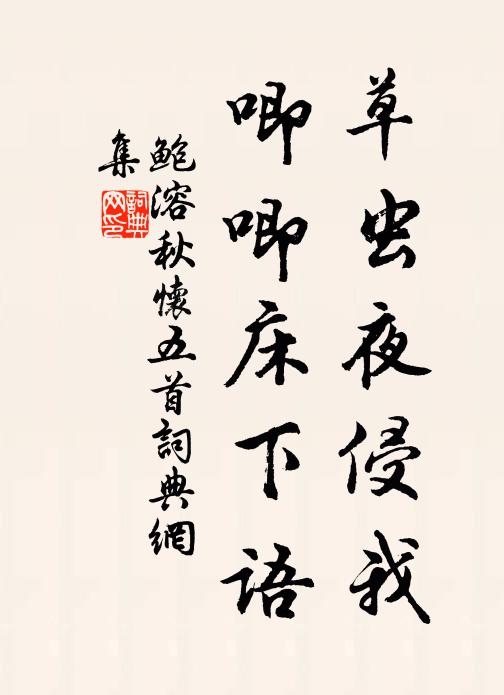 草虫夜侵我
唧唧床下语
鲍溶秋懷五首詞典網
集
詞典
网印